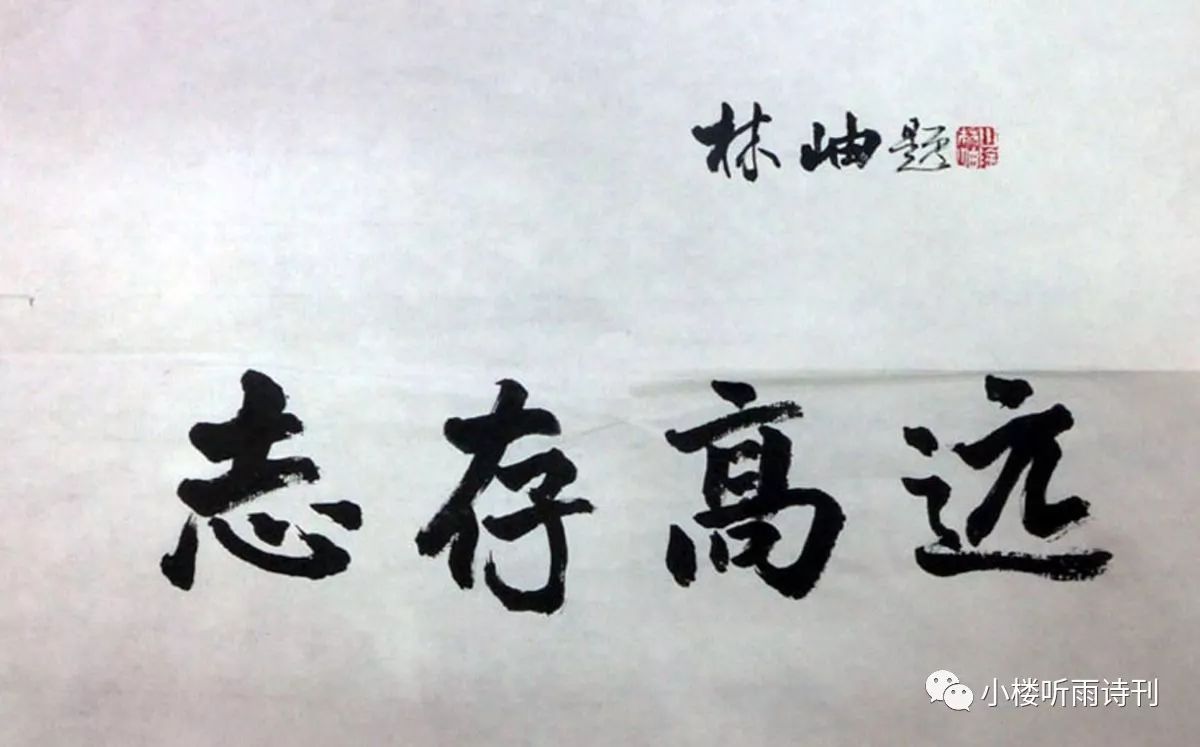 林岫题
志存高远
小楼听雨诗刊